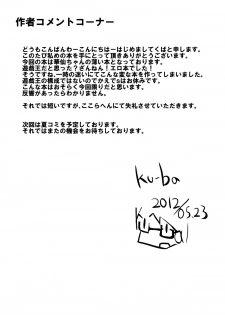 作者コメントコーナー
どうもこんばんわーこんにちはーはじめましてくばと申します。
このたび私めの本を手にとって頂きありがとうございます。
今回の本は華仙ちゃんの薄い本となっております。
遊戯王だと思った？ざんねん！エロ本でした！
そうですね、一時の迷いにてこんな変な本を作ってしまいました。
遊戯王の構成ではないのでかえでsはお休みです。
こんな本はおそらく今回限りだと思います。
反響があったらわかりません。
それでは短いですが、ここらへんにて失礼させていただきます。
次回は夏コミを予定しております。
それではまたの機会をお待ちしております。
Ku-ba
2012/
05.23